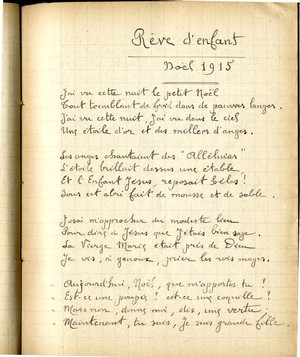 Rêve d'enfant
Noël 1915
J'ai vu cette nuit le petit Noël
Tout tremblant de froid dans de pauvres langes.
J'ai vu cette nuit, J'ai vu dans le ciel
Une étoile d'or et des milliers d'anges.
Les anges chantaient des "Alléluias"
L'étoile brillait dessus une étable
Et l'Enfant Jésus, reposait
Sous cet abri fait de mousse et de sable.
J'osai m'approcher du modeste lieu
Pour dire à Jésus que j'étais bien sage.
La Vierge Marie était près de Dieu
Je vis, à genoux, prier les rois mages.
" Aujourd'hui, Noël, que m'apportes tu ?
" Est-ce une poupée ? est-ce une coquille ?
" Mais non, donne moi, dis, une vertu
" Maintenant, tu sais, Je suis grande fille.